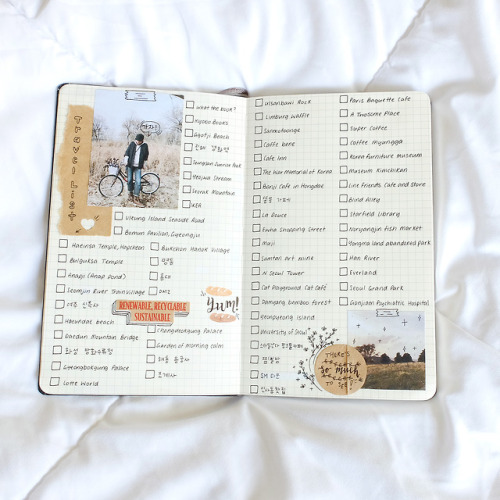 Travel List
가자!
What the book?
Kyobo Books
Gyoja Beach
Seonyudo Sunrise Park
Heojwa Stream
Seorak Mountain
IKEA
Uleung Island Seaside Road
Bomun Pavilion, Gyeongju
Haeinsa Temple, Hapcheon
Bulguksa Temple
Anapji (Anap Pond)
Seomjin River Train Village
Haeundae Beach
Daedun Mountain Bridge
Gyeongbokgung Palace
Lotte World
Bukchon Hanok Village
홍대
DMZ
RENEWABLE, RECYCLABLE
SUSTAINABLE
Yum!
Changdeokgung Palace
Garden of morning calm
Ulsanbawi Rock
Limburg Waffle
Caffe bene
Cafe Inn
The War Memorial of Korea
Banji Cafe in Hongdae
La Douce
Ewha Shopping Street
Maji
Sumton Art Mink
N Seoul Tower
Cat Playground, Cat Café
Damyang bamboo forest
Heonpureung Island
University of Seoul
Paris Baguette Cafe
A Twosome Place
Paper Coffee
Coffee Myungga
Korea Furniture Museum
Museum Kimchikan
Line Friends Cafe and Store
Blind Alley
Starfield Library
Noryangjin Fish Market
Yongma Land abandoned park
Han River
Everland
Seoul Grand Park
Gonjiam Psychiatric Hospital
THERE'S
so much
TO SEE